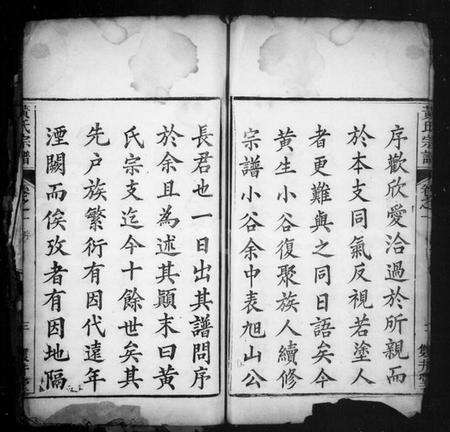 序歡欣愛洽過於所親而
於本支同氣反視若塗人
者更難與之同日語矣今
黃生小谷復聚族人續修
宗譜小谷余中表旭山公
長君也一日出其譜問序
於余且為述其顛末曰黃
氏宗支迄今十餘世矣其
先戶族繁衍有因代遠年
湮闕而俟攷者有因地隔
黃氏宗譜
卷之一
黃氏宗譜
卷之一